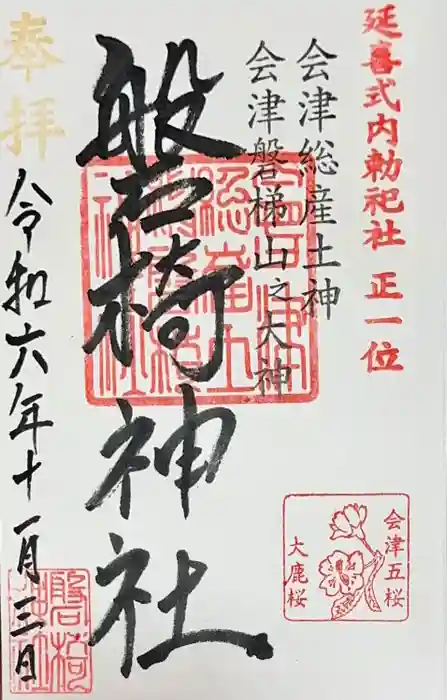 延喜式内勅祀社 正一位
会津総産土神
会津磐梯山之大神
磐椅神社
奉拝
令和六年十一月三日
会津五桜
大鹿桜
磐椅